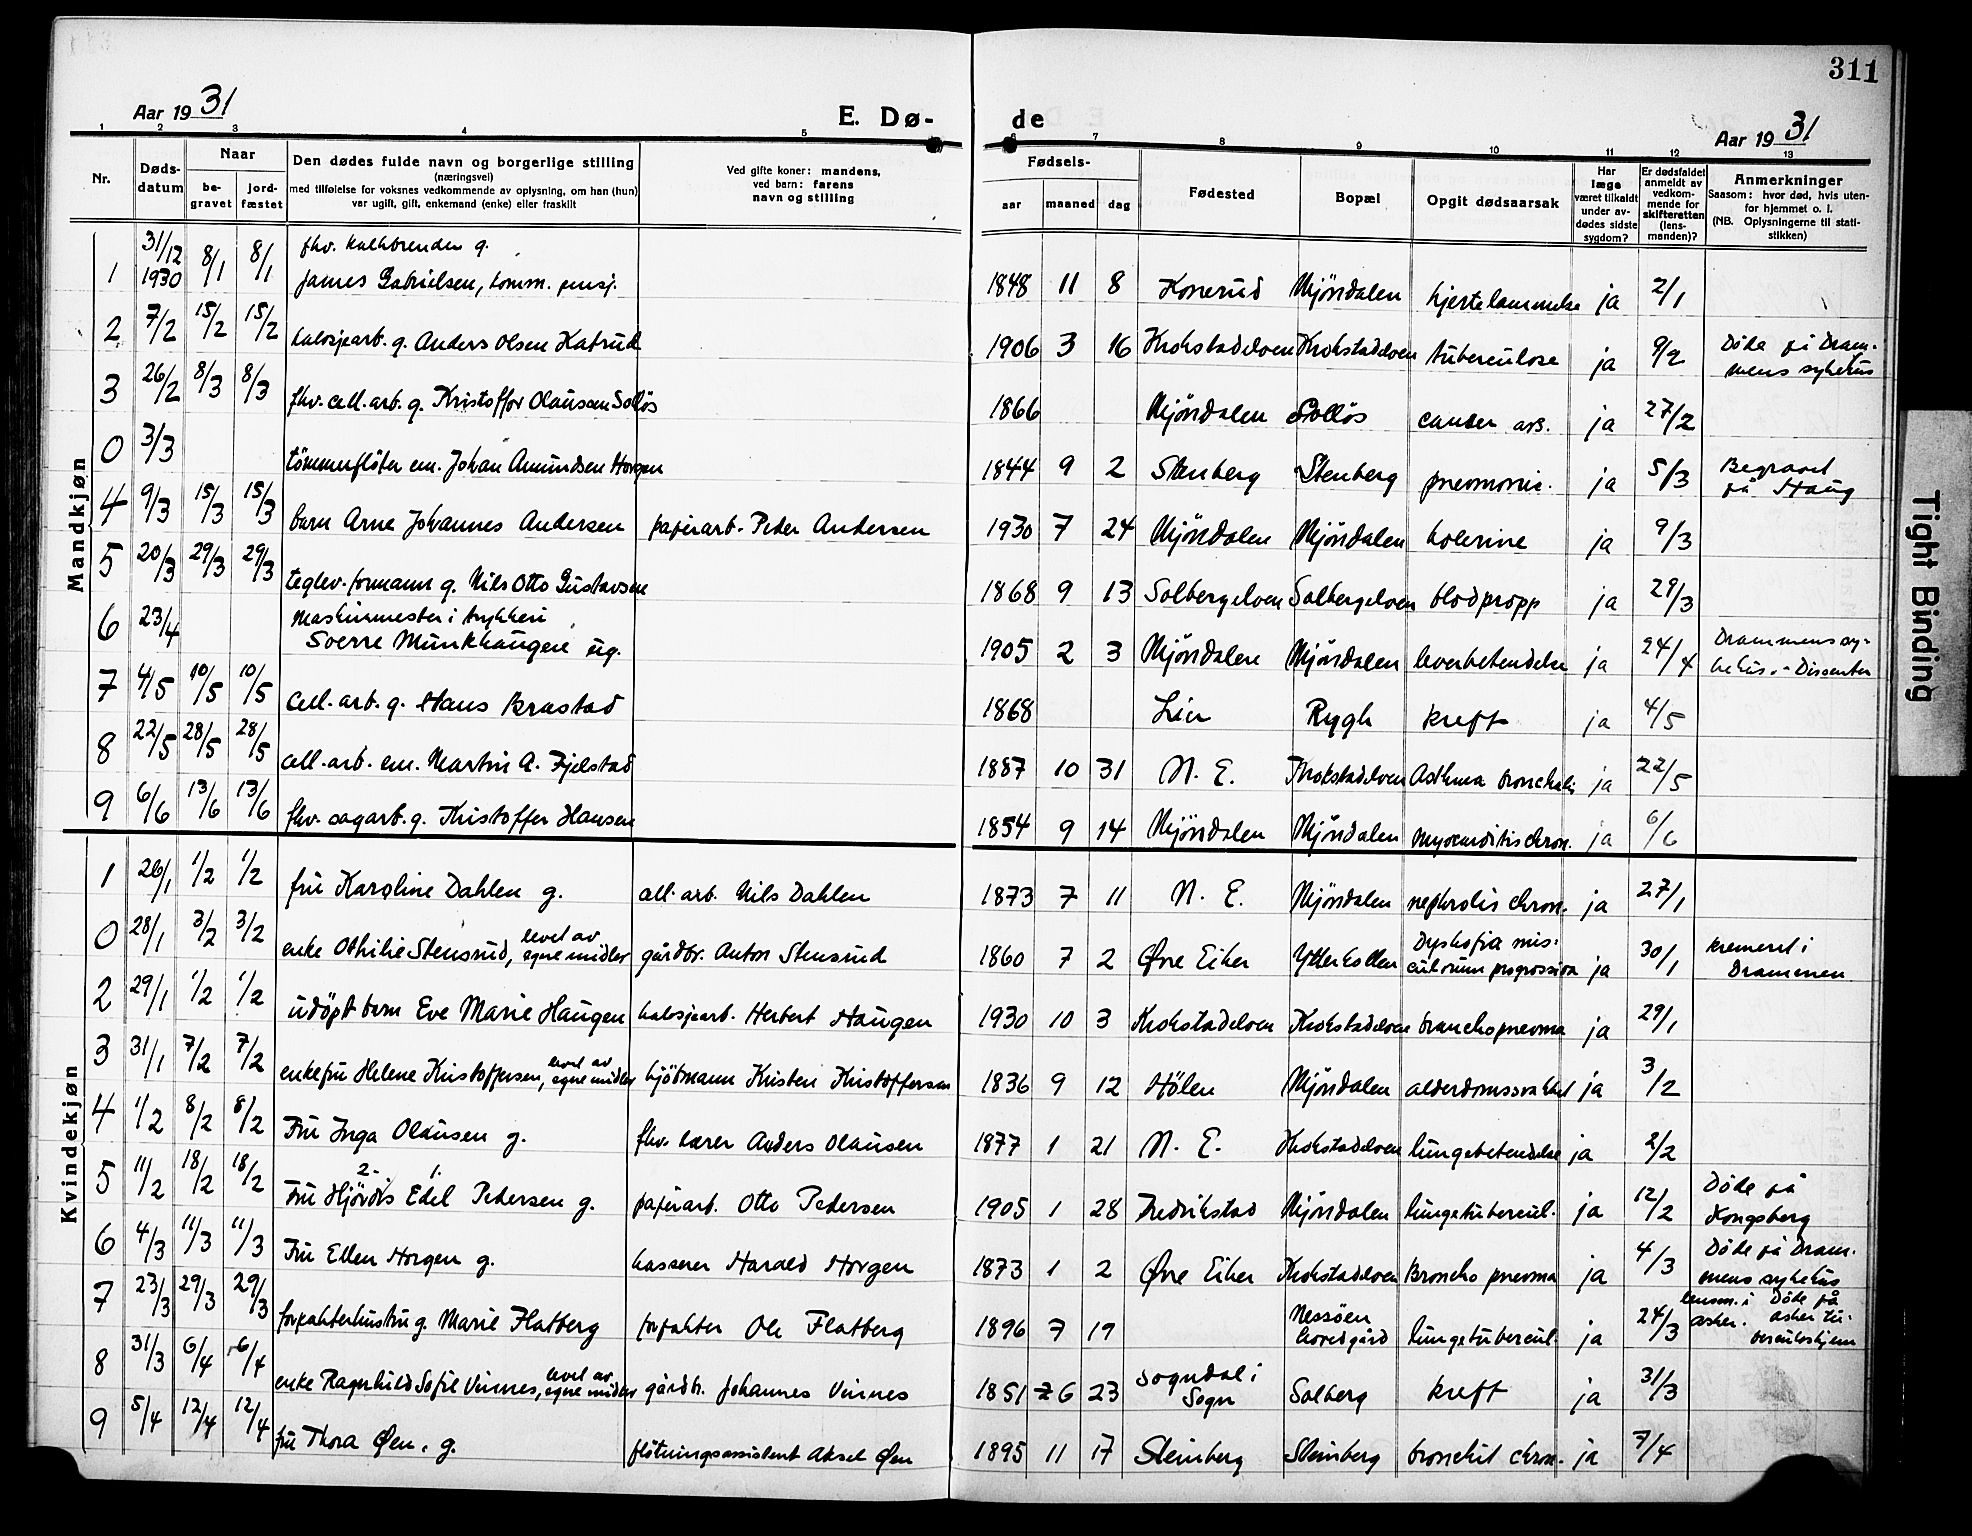 311
Aar 1931
E. Dø-
de
Aar 1931
1 2 3 4 5 6 7 8 9 10 11 12 13
Nr.
Døds-
datum
Naar
be-
gravet
jord-
fæstet
Den dødes fulde navn og borgerlige stilling
(næringsvei)
med tilføielse for voksnes vedkommende av oplysning, om han (hun)
var ugift, gift, enkemand (enke) eller fraskilt
Ved gifte koner: mandens,
ved barn: farens
navn og stilling
Fødsels-
aar maaned dag
Fødested
Bopæl
Opgit dødsaarsak
Har
læge
været tilkaldt
under av-
dødes sidste
sygdom?
Er dødsfaldet
anmeldt av
vedkom-
mende for
skifteretten
(lens-
manden)?
Anmerkninger
Saasom: hvor død, hvis uten-
for hjemmet o. l.
(NB. Oplysningerne til stati-
stikken)
Mandkjøn
1 31/12 1930 8/1 8/1 fhv. kalkbrender g.
James Gabrielsen, komm. pensj. 1848 11 8 Konerud Mjöndalen hjertelammelse ja 2/1
2 7/2 15/2 15/2 kalosjearb. g. Anders Olsen Katrud 1906 3 16 Krokstadelven Krokstadelven tuberculose ja 9/2 Döde på Dram-
mens sykehus
3 26/2 8/3 8/3 fhv. cell. arb. g. Kristoffer Olaussen Solløs 1866 Mjöndalen Solløs cancer ja 27/2
0 3/3 tömmerfløter em. Johan Amundsen Horgen 1844 9 2 Stenberg Stenberg pneumonie. ja 5/3 Begravet
på Haug
4 9/3 15/3 15/3 barn Arne Johannes Andersen papirarb. Peder Andersen 1930 7 24 Mjöndalen Mjöndalen kolerine ja 9/3
5 20/3 29/3 29/3 teglv. formann g. Nils Otto Gustavsen 1868 9 13 Solbergelven Solbergelven blodpropp ja 29/3
6 23/4 Maskinmester i trykkeri
Sverre Munkhaugen ug. 1905 2 3 Mjöndalen Mjöndalen leverbetendelse ja 24/4 Drammens sy-
kehus. - Dissenter
7 4/5 10/5 10/5 cell. arb. g. Hans Brastad 1868 Lier Rygh kreft ja 4/5
8 22/5 28/5 28/5 cell. arb. em. Martin A. Fjelstad 1887 10 31 N. E. Krokstadelven Asthma bronchale ja 22/5
9 6/6 13/6 13/6 fhv. sagarb. g. Kristoffer Hansen 1854 9 14 Mjöndalen Mjöndalen myocarditis chron. ja 6/6
Kvindekjøn
1 26/1 1/2 1/2 fru Karoline Dahlen g. cell. arb. Nils Dahlen 1873 7 11 N. E. Mjöndalen nephrolis chron. ja 27/1
0 28/1 3/2 3/2 enke Othilie Stensrud, levet av egne midler gårdbr. Anton Stensrud 1860 7 2 Øvre Eiker Ytterkollen Dystrofia mus-
culorum progressiva ja 30/1 kremeret i
Drammen
2 29/1 1/2 1/2 udöpt barn Eve Marie Haugen kalosjearb. Herbert Haugen 1930 10 3 Krokstadelven Krokstadelven bronchopneuma ja 29/1
3 31/1 7/2 7/2 enkefru Helene Kristoffersen, levet av egne midler kjöbmann Kristen Kristoffersen 1836 9 12 Hølen Mjöndalen alderdomssvakhet ja 3/2
4 1/2 8/2 8/2 Fru Inga Olausen g. fhv. lærer Anders Olausen 1877 1 21 N. E. Krokstadelven lungebetendelse ja 2/2
5 11/2 18/2 18/2 Fru Hjördis 2. Edel 1. Pedersen g. papirarb. Otto Pedersen 1905 1 28 Fredrikstad Mjöndalen lungetubercul. ja 12/2 Döde på
Kongsberg
6 4/3 11/3 11/3 Fru Ellen Horgen g. kasserer Harald Horgen 1873 1 2 Øvre Eiker Krokstadelven Broncho pneuma ja 4/3 Döde på Dram-
mens sykehus
7 23/3 29/3 29/3 forpakterhustru g. Marie Flatberg forpakter Ole Flatberg 1896 7 19 Nessöen
hovedgård lungetubercul. ja 24/3 lensm. i
Asker. Döde på
Asker tu-
berculoshjem
8 31/3 6/4 6/4 enke Ragnhild Sofie Vinnes, levet av egne midler gårdb. Johannes Vinnes 1851 6 23 Sogndal i
Sogn Solberg kreft ja 31/3
9 5/4 12/4 12/4 fru Thora Øen, g. flötningsassistent Aksel Øen 1895 11 17 Steinberg Steinberg bronchit chron. ja 7/4
Tight Binding